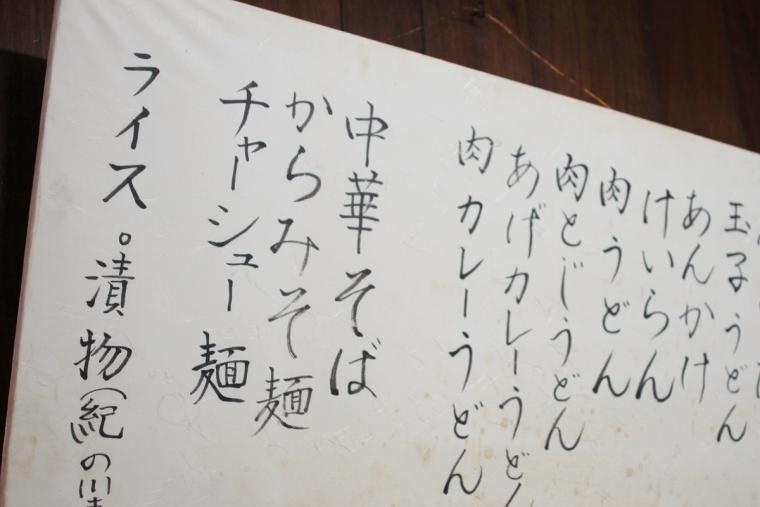 玉子うどん
あんかけ
けいらん
肉うどん
肉とじうどん
あげカレーうどん
肉カレーうどん
中華そば
からみそ麺
チャーシュー麺
ライス。漬物(紀の川